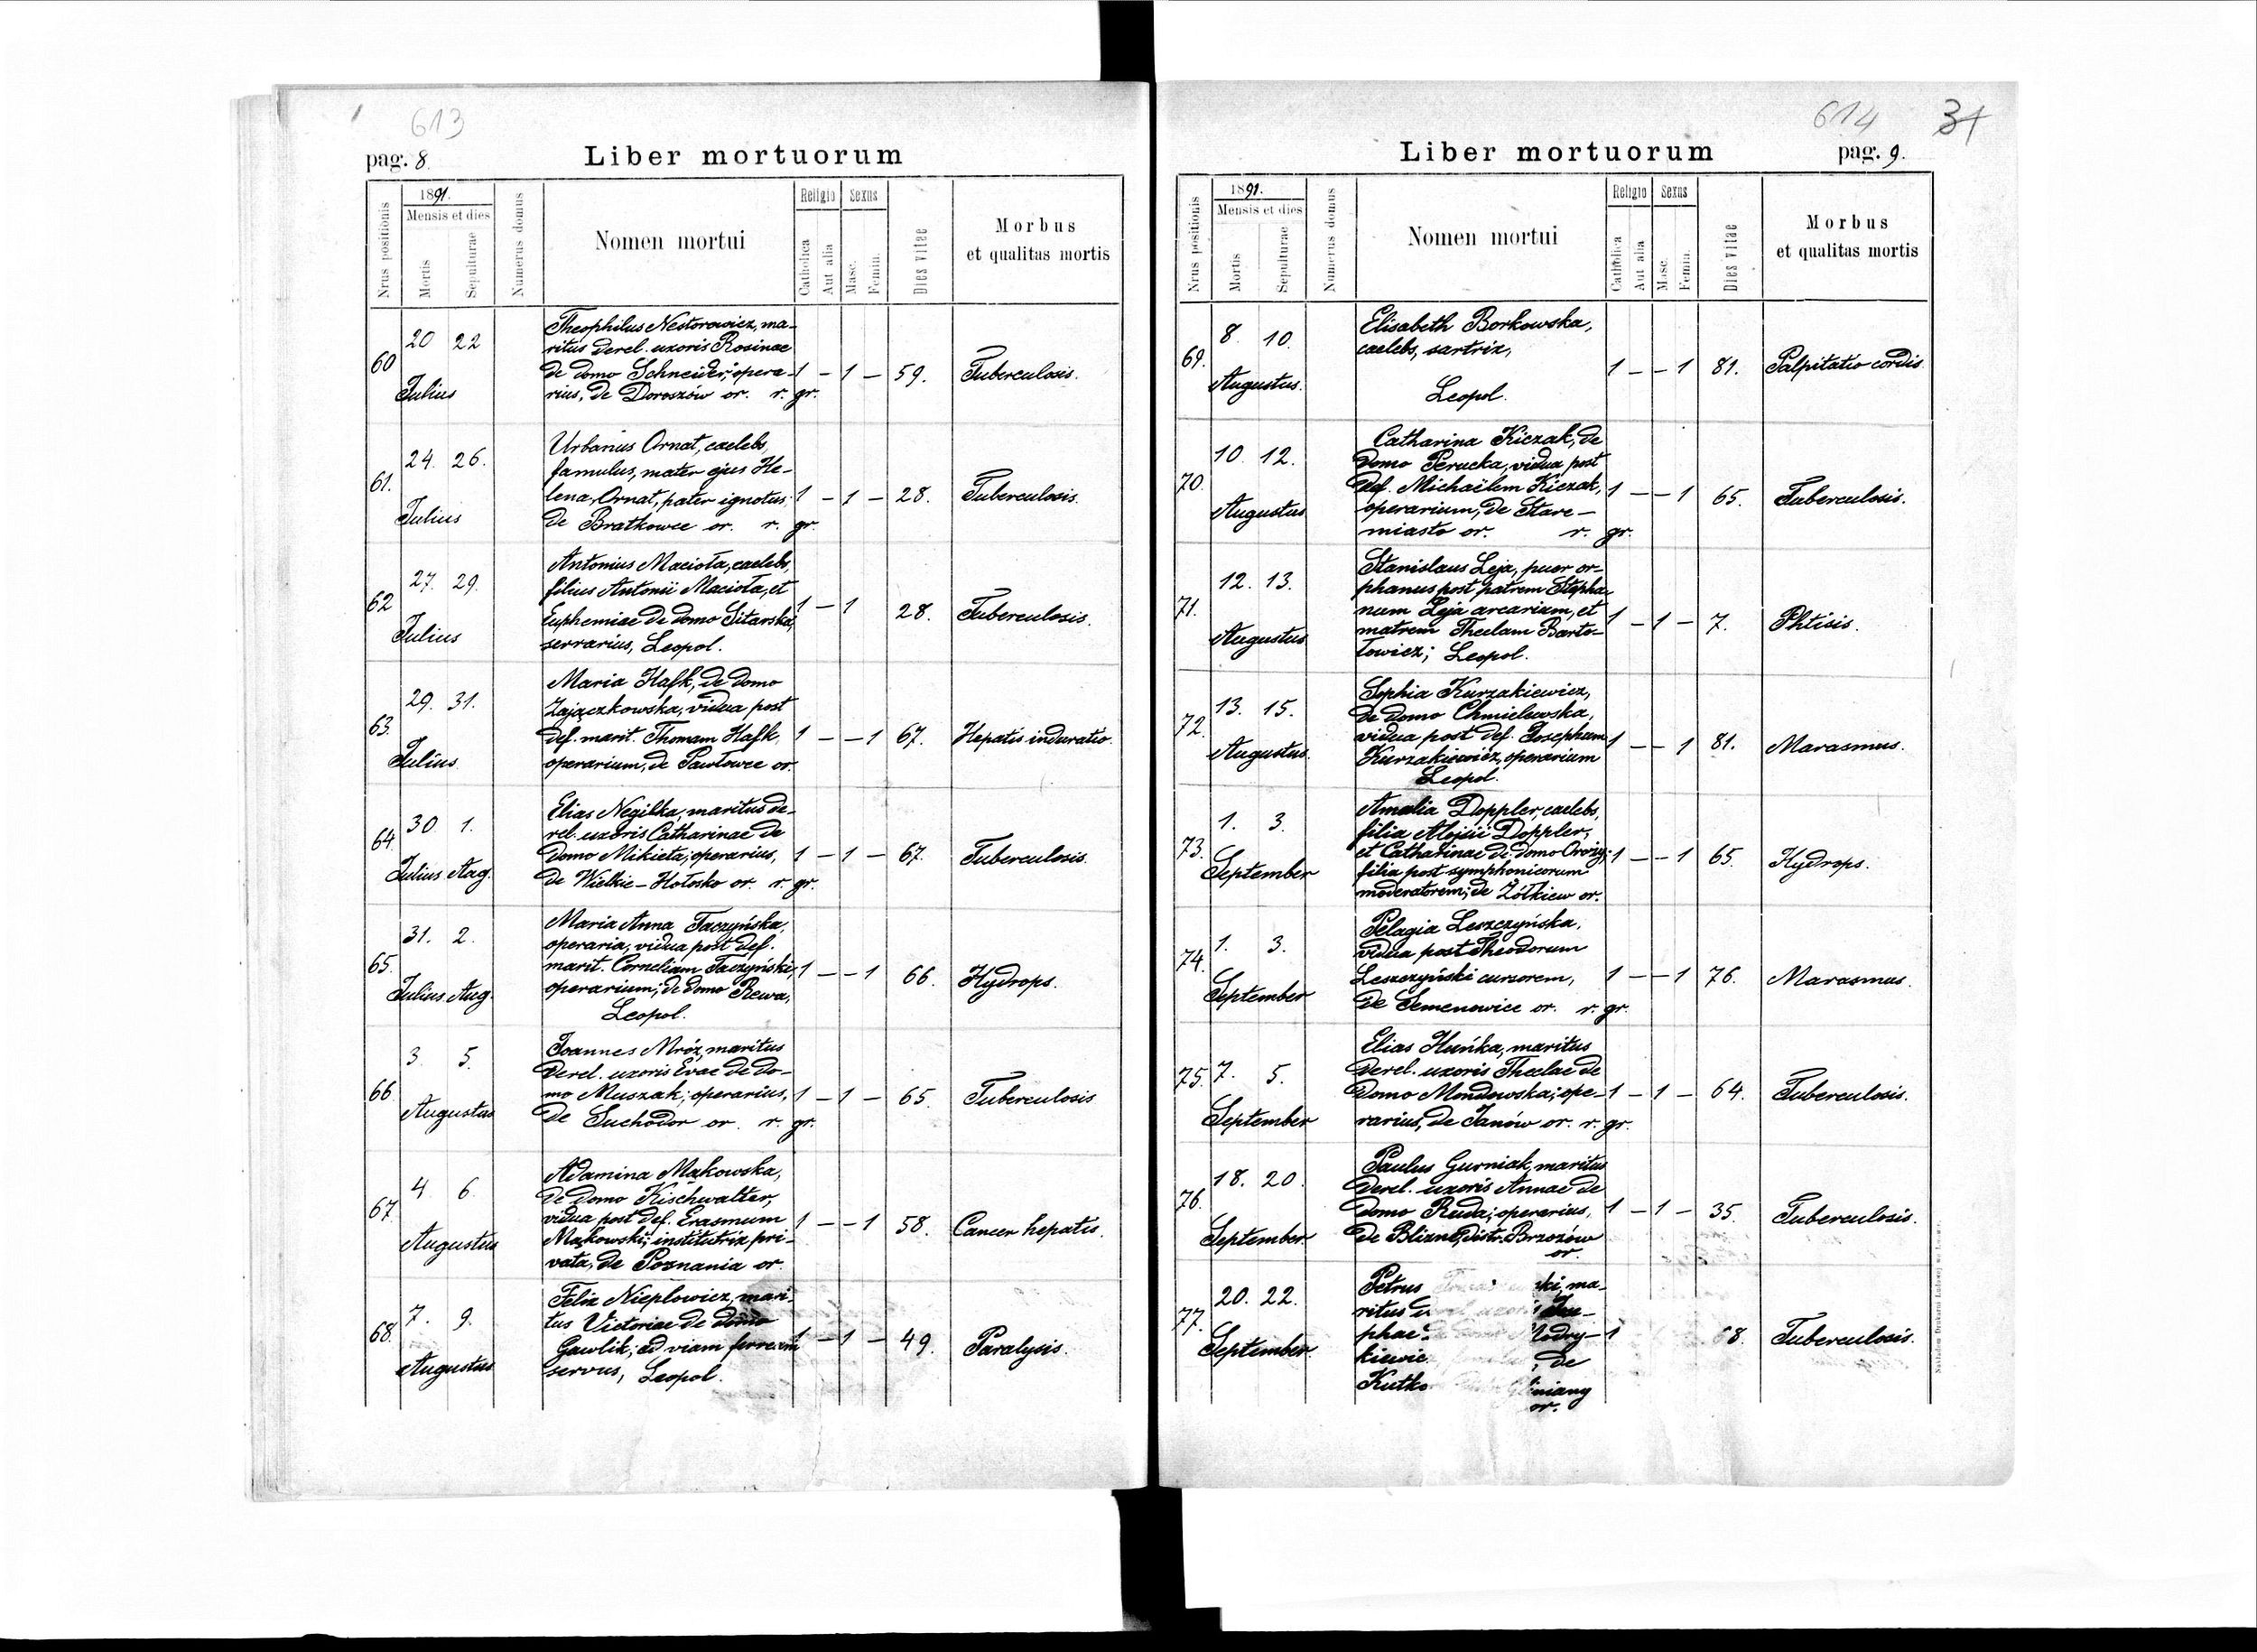 613
pag. 8.
Liber mortuorum
Nrus positionis
1891.
Mensis et dies
Mortis
Sepulturae
Numerus domus
Nomen mortui
Religio
Catholica
Aut alia
Sexus
Masc.
Femin.
Dies vitae
Morbus
et qualitas mortis
60
20 22
Julius
Theophilus Nestorowicz, ma-
ritus derel. uxoris Rosinae
de domo Schneider; opera-
rius, de Doroszów or. r. gr.
1 – 1 – 59. Tuberculosis.
61.
24. 26.
Julius
Urbanus Ornat, caelebs,
famulus, mater ejus He-
lena Ornat, pater ignotus;
de Bratkowce or. r. gr.
1 – 1 – 28. Tuberculosis.
62
27. 29.
Julius
Antonius Maciota, caelebs,
filius Antonii Maciota, et
Euphemiae de domo Sitarska;
serrarius, Leopol.
1 – 1 28. Tuberculosis.
63.
29. 31.
Julius
Maria Hafk, de domo
Zajączkowska, vidua post
def. marit. Thomam Hafk,
operarium, de Pawłowce or.
1 – – 1 67. Hepatis induratio.
64.
30 1.
Julius Aug.
Elias Negilka, maritus de-
rel. uxoris Catharinae de
domo Mikieta; operarius,
de Wielkie-Hołosko or. r. gr.
1 – 1 – 67. Tuberculosis.
65.
31. 2.
Julius Aug.
Maria Anna Taczyńska,
operaria, vidua post def.
marit. Cornelium Taczyński,
operarium; de domo Rewa,
Leopol.
1 – – 1 66. Hydrops.
66
3. 5.
Augustus
Joannes Mróz, maritus
derel. uxoris Evae de do-
mo Muszak; operarius,
de Suchodor or. r. gr.
1 – 1 – 65. Tuberculosis
67
4. 6.
Augustus
Adamina Mąkowska,
de domo Kischwalter,
vidua post def. Erasmum
Mąkowski; institutrix pri-
vata, de Poznania or.
1 – – 1 58. Cancer hepatis.
68.
7. 9.
Augustus
Felix Nieplowicz, mari-
tus Victoriae de domo
Gawlik; ad viam ferream
servus, Leopol.
1 – 1 – 49. Paralysis.
614
31
Liber mortuorum
pag. 9.
Nrus positionis
1891.
Mensis et dies
Mortis
Sepulturae
Numerus domus
Nomen mortui
Religio
Catholica
Aut alia
Sexus
Masc.
Femin.
Dies vitae
Morbus
et qualitas mortis
69.
8. 10.
Augustus.
Elisabeth Borkowska,
caelebs, sartrix,
Leopol.
1 – – 1 81. Palpitatio cordis.
70.
10. 12.
Augustus
Catharina Kiczak, de
domo Perucka, vidua post
def. Michaëlem Kiczak,
operarium, de Stare-
miasto or. r. gr.
1 – – 1 65. Tuberculosis.
71.
12. 13.
Augustus
Stanislaus Leja, puer or-
phanus post patrem Stepha-
num Leja arcarium, et
matrem Theclam Barto-
łowicz; Leopol.
1 – 1 – 7. Phtisis.
72.
13. 15.
Augustus.
Sophia Kurzakiewicz,
de domo Chmielewska,
vidua post def. Josephum
Kurzakiewicz, operarium
Leopol.
1 – – 1 81. Marasmus.
73.
1. 3.
September
Amalia Doppler, caelebs,
filia Alojsii Doppler,
et Catharinae de domo
filia post symphonicorum
moderatorem; de Żółkiew or.
1 – – 1 65. Hydrops.
74.
1. 3.
September
Pelagia Leszczyńska,
vidua post Theodorum
Leszczyński cursorem,
de Semenowice or. r. gr.
1 – – 1 76. Marasmus.
75.
7. 5.
September
Elias Huńka, maritus
derel. uxoris Theclae de
domo Mondowska; ope-
rarius, de Janów or. r. gr.
1 – 1 – 64. Tuberculosis.
76.
18. 20.
September.
Paulus Gurniak, maritus
derel. uxoris Annae de
domo Ruda; operarius,
de Blizne, distr. Brzozów
or.
1 – 1 – 35. Tuberculosis.
77.
20. 22.
September.
Petrus ma-
ritus
phae
kiewic de
Kutko
or.
1 68. Tuberculosis.